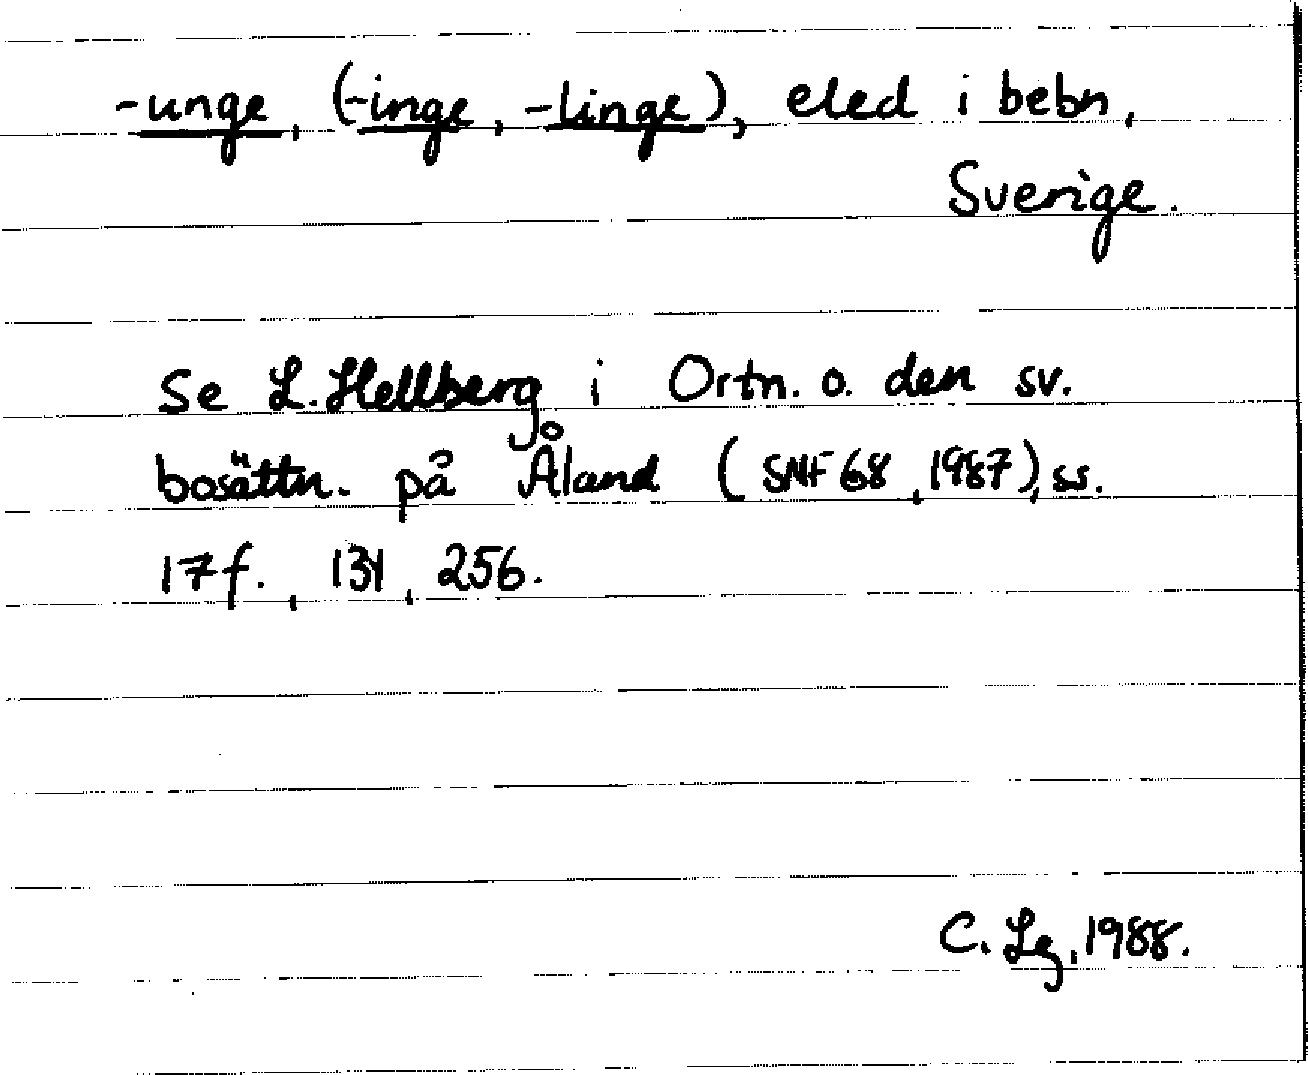 -unge, (-inge, -linge), eled i bebn,
Sverige.
Se L. Hellberg i Ortn. o. den sv.
bosättn. på Åland (SNF 68, 1987), ss.
17f., 131, 256.
C. Lg, 1988.